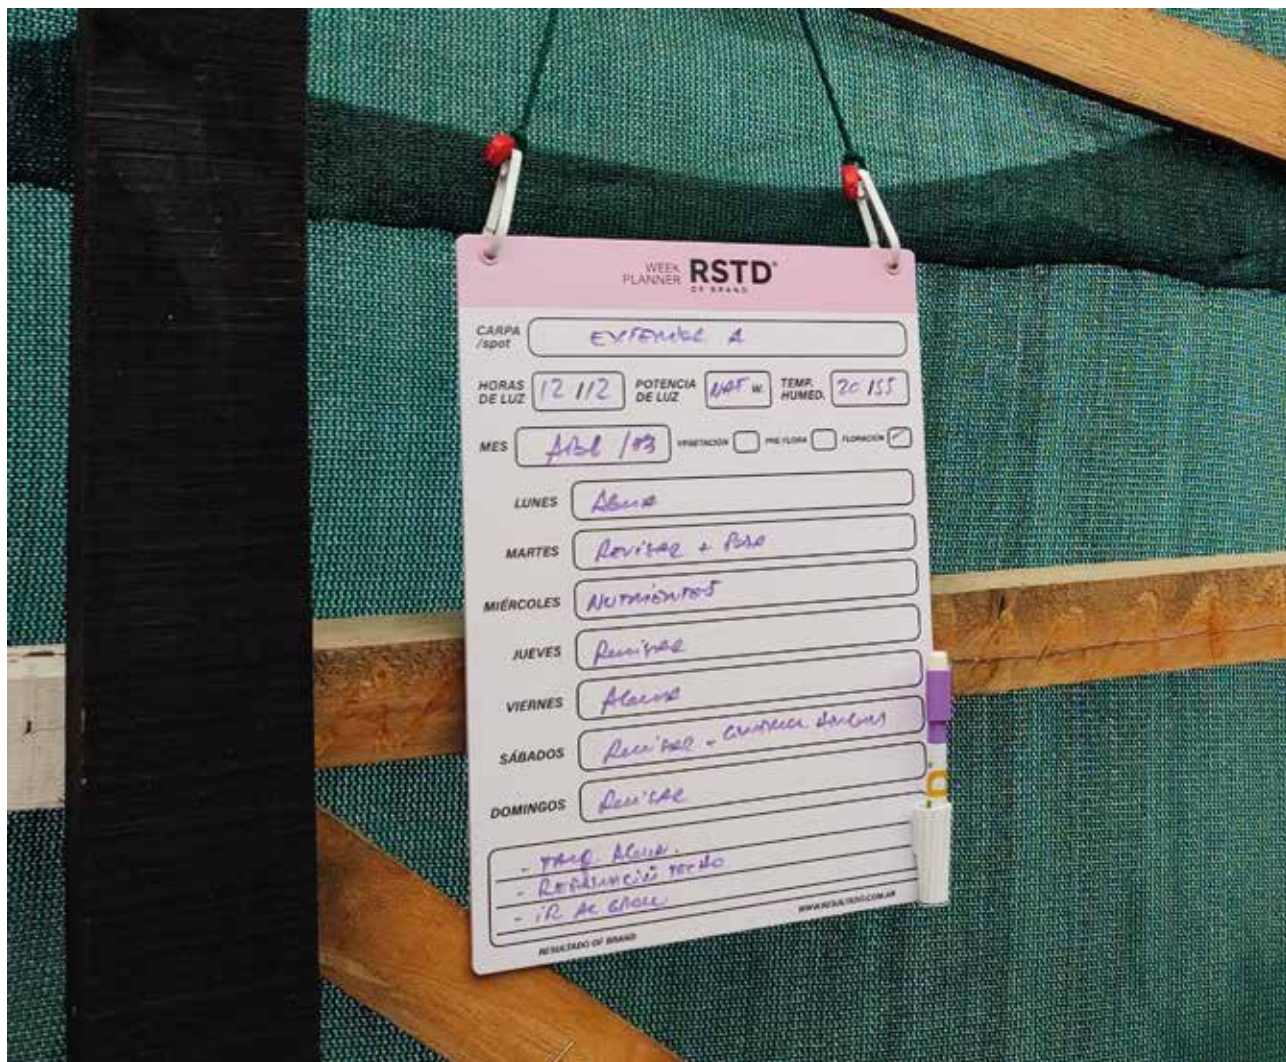 WEEK
PLANNER RSTD
OF BRAND
CARPA
/spot EXTERIOR A
HORAS
DE LUZ 12 /12 POTENCIA
DE LUZ NAT W. TEMP.
HUMED. 20 /55
MES /03 VEGETACIÓN PRE FLORA FLORACIÓN
LUNES AGUA
MARTES REVISAR + PODA
MIÉRCOLES NUTRIENTES
JUEVES REVISAR
VIERNES AGUA
SÁBADOS REVISAR - CONTROL
DOMINGOS REVISAR
- TANQ. AGUA.
- REPARACIÓN TECHO
- IR AL GROW
RESULTADO OF BRAND WWW.RESULTADO.COM.AR